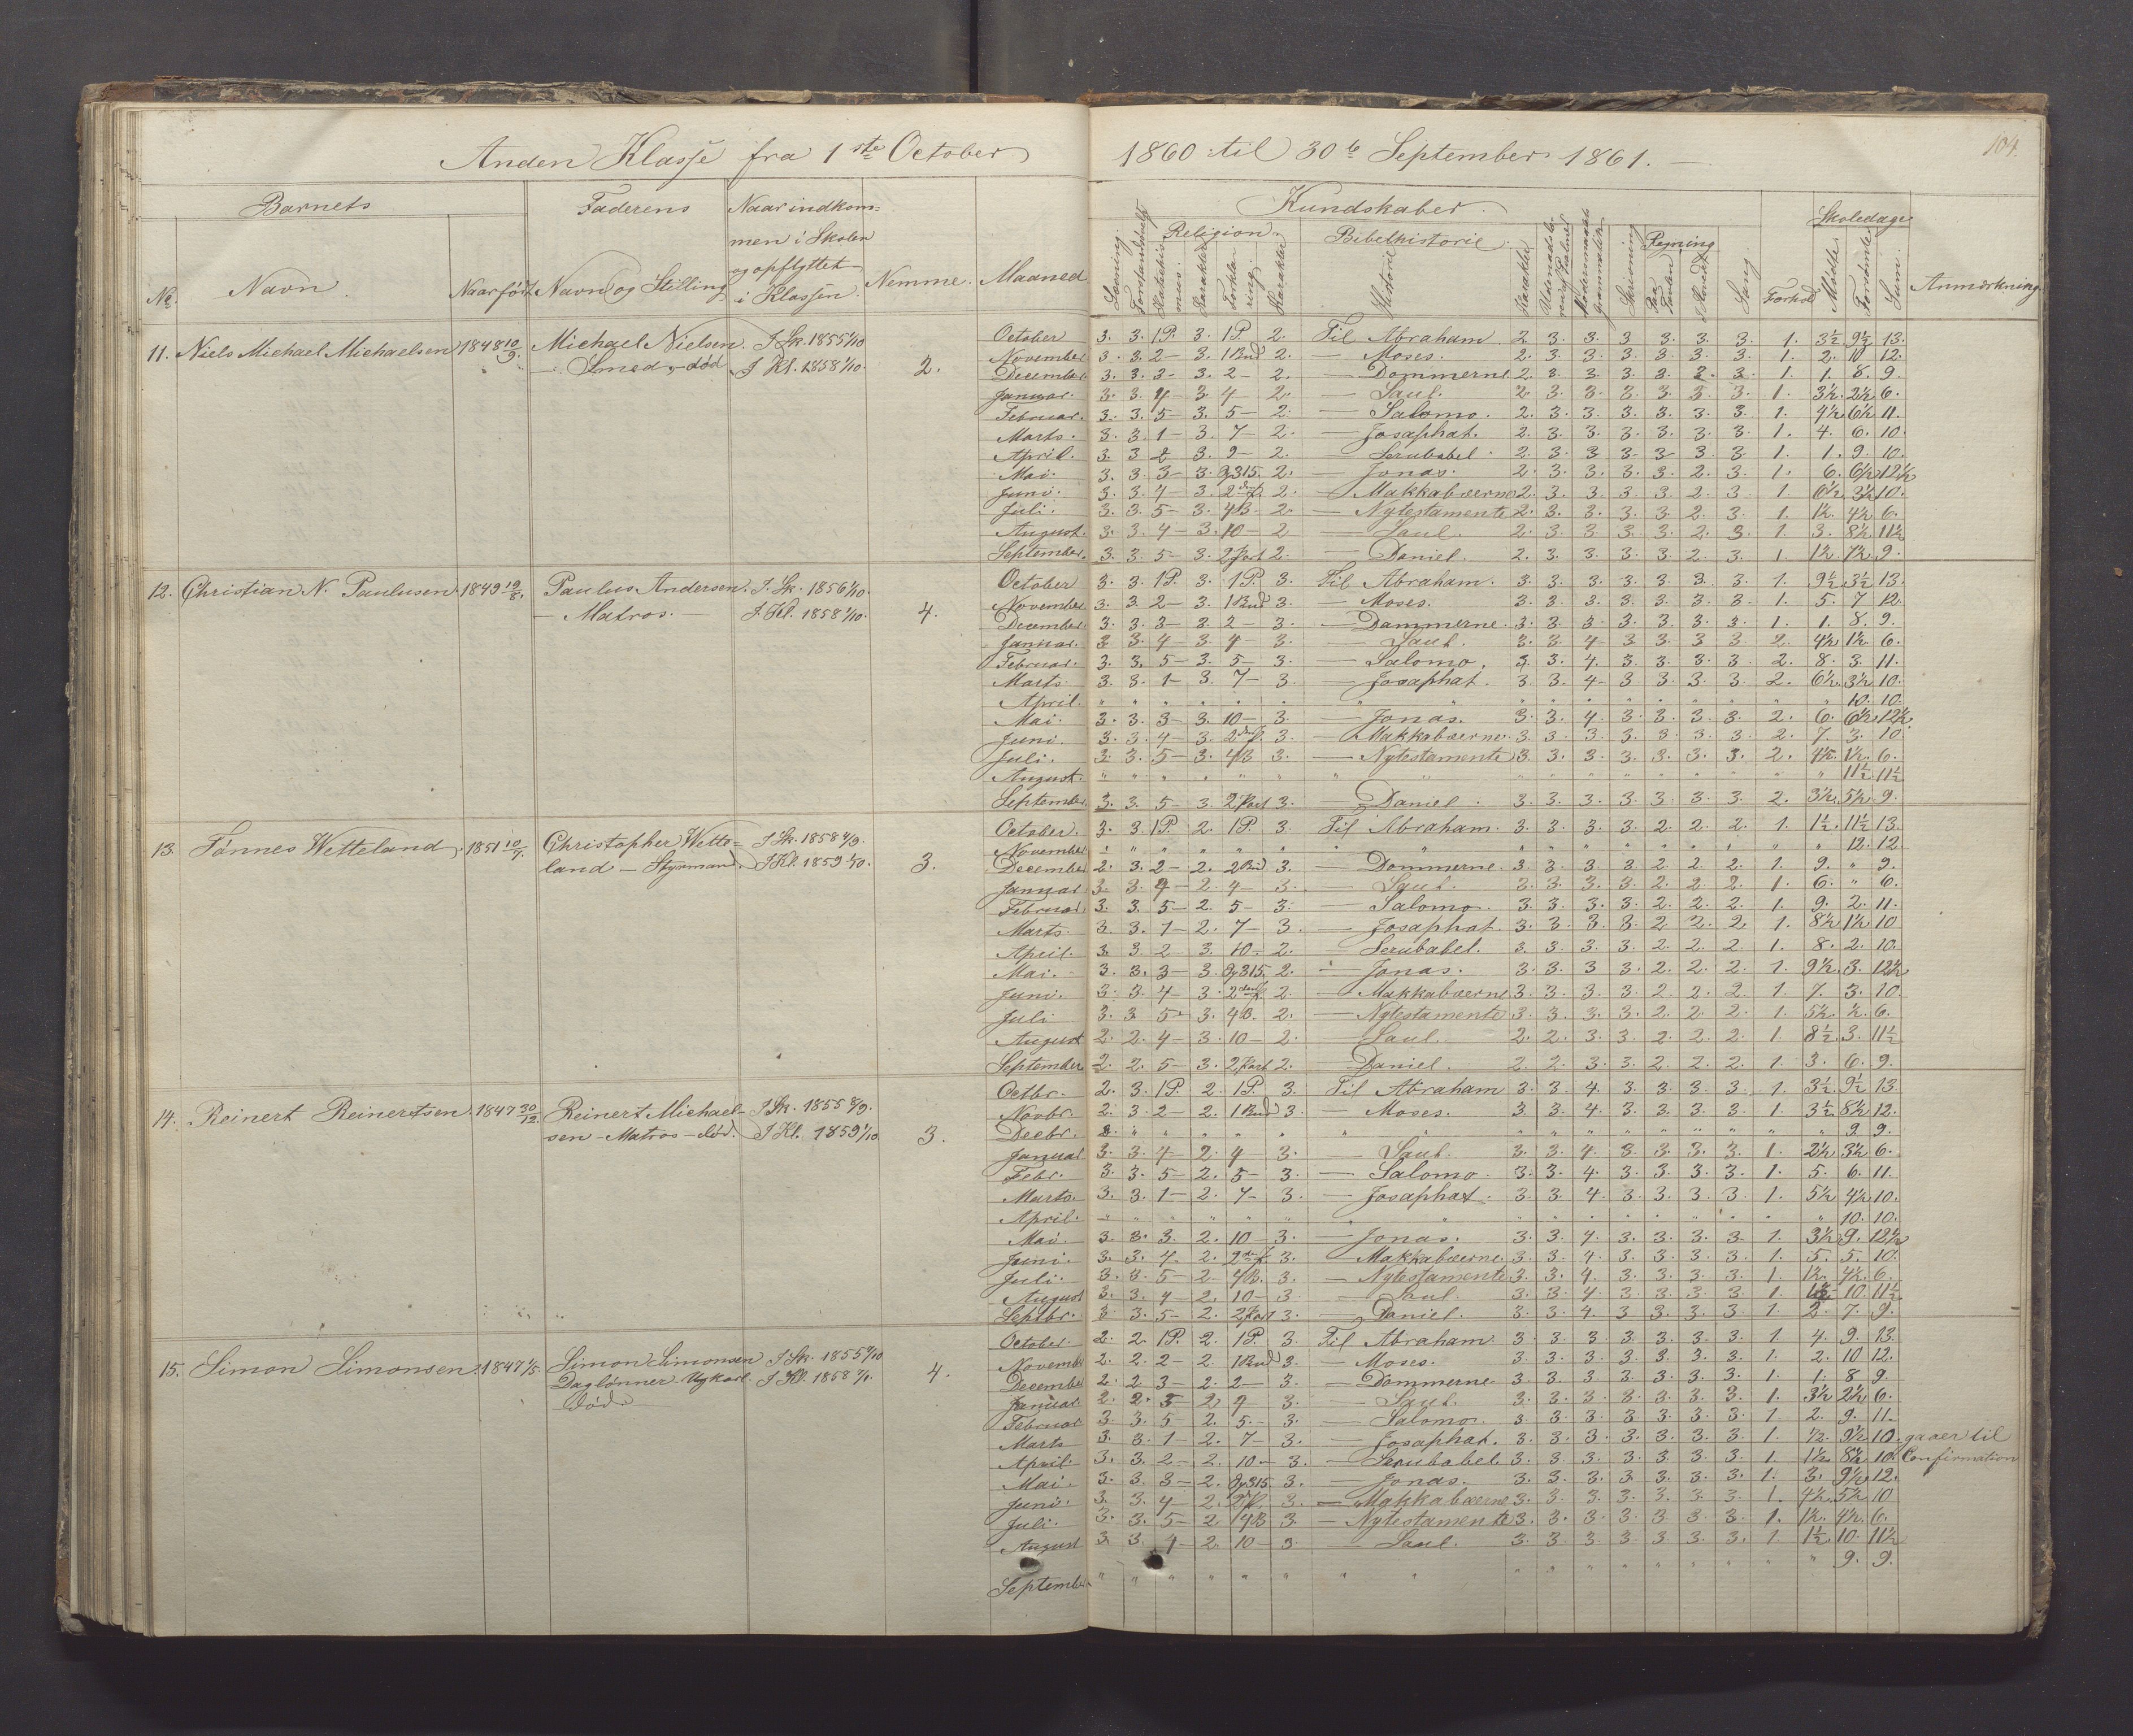 104.
Anden Klasse fra 1ste October 1860 til 30te September 1861. —
Barnets
Faderens
Naar indkom=
men i Skolen
og opflyttet
i Klassen.
No. Navn. Naar født. Navn og Stilling. Nemme. Maaned.
Kundskaber.
Religion. Bibelhistorie. Regning Skoledage
Læsning. Forstandsøvelse Katechismus. Karakter Forklaring. Karakter Historie Karakter Udenadslæsning Psalmer Modersmaal Grammatik Skrivning Paa Tavlen Sang. Forhold Mødte. Forsømte. Sum. Anmærkning.
11. Niels Michael Michaelsen 1848 10/9. Michael Nielsen. I Sk. 1855 1/10
— Smed — død I Kl. 1858 1/10. 2.
October 3. 3. 1P. 3. 1P. 2. Til Abraham. 2. 3. 3. 3 3. 3. 3. 1. 3½ 9½ 13.
November 3. 3. 2 — 3. 1 Bud 2. — Moses. 2. 3. 3. 3. 3. 3. 3. 1. 2. 10 12.
December. 3. 3. 3 — 3. 2 — 2. — Dommerne. 2. 3. 3. 3. 3. 3. 3. 1. 1. 8. 9.
Januar. 3. 3. 4 — 3. 4 — 2. — Saul. 2. 3. 3. 3. 3. 3. 3. 1. 3½. 2½ 6.
Februar. 3. 3. 5 — 3. 5 — 2. — Salomo. 2. 3. 3. 3. 3. 3. 3. 1. 4½ 6½ 11.
Marts. 3. 3. 1 — 3. 7 — 2. — Josaphat. 2. 3. 3. 3. 3. 3. 3. 1. 4. 6. 10.
April. 3. 3. 2 3. 9 — 2. — Serubabel. 2. 3. 3. 3. 3. 3. 3. 1. 1. 9. 10.
Mai. 3. 3. 3 — 3. 315. 2. — Jonas. 2. 3. 3. 3. 3. 2. 3. 1. 6. 6½ 12½
Juni. 3. 3. 4 — 3. 2 2. — Makkabæerne 2. 3. 3. 3. 3. 2. 3. 1. 6½. 3½ 10.
Juli. 3. 3. 5 — 3. 4B. 2. — Nytestamente 2. 3. 3. 3. 3. 2. 3. 1. 1½. 4½ 6.
August. 3. 3. 4 — 3. 10 — 2. — Saul. 2. 3. 3. 3. 3. 2. 3. 1. 3. 8½ 11½
September. 3. 3. 5 — 3. 2 Part 2. — Daniel. 2. 3. 3. 3. 3. 2. 3. 1. 1½. 7½ 9.
12. Christian N. Paulusen. 1849 19/8. Paulus Andersen. I Sk. 1856 1/10.
— Matros. I Kl. 1858 1/10. 4.
October 3. 3. 1P. 3. 1P. 3. Til Abraham. 3. 3. 3. 3. 3. 3. 3. 1. 9½ 3½ 13.
November 3. 3. 2 — 3. 1 Bud 3. — Moses. 3. 3. 3. 3. 3. 3. 3. 1. 5. 7 12.
December. 3. 3. 3 — 3. 2 — 3. — Dommerne. 3. 3. 3. 3. 3. 3. 3. 1. 1. 8. 9.
Januar. 3. 3. 4 — 3. 4 — 3. — Saul. 3. 3. 4 3. 3. 3. 3. 2. 4½ 1½ 6.
Februar. 3. 3. 5 — 3. 5 — 3. — Salomo. 3. 3. 4. 3. 3. 3. 3. 2. 8. 3. 11.
Marts. 3. 3. 1 — 3. 7 — 3. — Josaphat. 3. 3. 4 3. 3. 3. 3. 2. 6½ 3½ 10.
April. " " " " " " " " " " " " " " " " 10. 10.
Mai. 3. 3. 3 — 3. 10 — 3. — Jonas. 3. 3. 4. 3. 3. 3. 3. 2. 6. 6½ 12½
Juni. 3. 3. 4 — 3. 2 3. — Makkabæerne. 3. 3. 3. 3. 3. 3. 3. 2. 7. 3. 10
Juli. 3. 3. 5 — 3. 4B 3. — Nytestamente 3. 3. 3. 3. 3. 3. 3. 2. 4½. 1½. 6.
August. " " " " " " " " " " " " " " " " 11½ 11½
September. 3. 3. 5 — 3. 2 Part 3. — Daniel. 3. 3. 3. 3. 3. 3. 3. 2. 3½. 5½ 9.
13. Tønnes Wetteland. 1851 10/7. Christopher Wette= I Sk. 1858
land — Styrmand. I Kl. 1859 1/10. 3.
October. 3. 3. 1P. 2. 1P. 3. Til Abraham. 3. 3. 3. 3. 2. 2. 2. 1. 1½. 11½ 13.
November " " " " " " " " " " " " " " " " 12. 12
December 2. 3. 2 — 2. 2 Bud 3. — Dommerne. 3. 3. 3. 3. 2. 2. 2. 1. 9. " 9.
Januar. 3. 3. 4 — 2. 4 — 3. — Saul. 3. 3. 3. 3. 2. 2. 2. 1. 6. " 6.
Februar. 3. 3. 5 — 2. 5 — 3. — Salomo. 3. 3. 3. 3. 2. 2. 2. 1. 9. 2. 11.
Marts. 3. 3. 1 — 2. 7 — 3. — Josaphat. 3. 3. 3. 3. 2. 2. 2. 1. 8½ 1½ 10
April. 3. 3. 2 3. 10 — 2. — Serubabel. 3. 3. 3. 3. 2. 2. 2 1. 8. 2. 10.
Mai. 3. 3. 3 — 3. 315. 2. — Jonas. 3. 3. 3. 3. 2. 2. 2. 1. 9½. 3. 12½
Juni. 3. 3. 4 — 3. 2 2. — Makkabæerne. 3. 3. 3. 3. 2. 2. 2. 1. 7. 3. 10.
Juli 3. 3. 5 3. 4B. 2. — Nytestamente 3. 3. 3. 3. 2. 2. 2. 1. 5½. ½. 6.
August 2. 2. 4 — 3. 10 — 2. — Saul. 2. 2. 3. 3. 2. 2. 2. 1. 8½. 3. 11½
September 2. 2. 5 — 3. 2 Part 2. — Daniel. 2. 2. 3. 3. 2. 2. 2. 1. 3. 6. 9.
14. Reinert Reinertsen. 1847 30/12. Reinert Michael- I Sk. 1855
sen — Matros — død. I Kl. 1859 1/10 3.
Octbr. 2. 3. 1P. 2. 1P. 3. Til Abraham 3. 3. 4. 3. 3. 3. 3. 1. 3½ 9½ 13
Novbr. 2. 3. 2 — 2. 1 Bud 3. — Moses. 3 3. 4. 3. 3. 3. 3. 1. 3½ 8½ 12.
Decbr. " " " " " " " " " " " " " " " 9. 9.
Januar 3. 3. 4 — 2. 4 — 3. — Saul. 3. 3. 4. 3. 3. 3. 3. 1. 2½. 3½ 6.
Febr. 3. 3. 5 — 2. 5 — 3. — Salomo. 3. 3. 4. 3. 3. 3. 3. 1. 5. 6. 11
Marts. 3. 3. 1 — 2. 7 — 3. — Josaphat. 3. 3. 4. 3. 3. 3. 3. 1. 5½ 4½ 10.
April. " " " " " " " " " " " " " " " " 10. 10.
Mai. 3. 3. 3. 2. 10 — 3. — Jonas. 3. 3. 4. 3. 3. 3. 3. 1. 3½ 9. 12½
Juni. 3. 3. 4. 2. 2 3. — Makkabæerne. 3. 3. 4. 3. 3. 3. 3. 1. 5. 5. 10.
Juli. 3. 3. 5 — 2. 4B. 3. — Nytestamente 3. 3. 4. 3. 3. 3. 3. 1. 1½. 4½. 6.
August 3. 3. 4 — 2. 10 — 3. — Saul. 3. 3. 4. 3. 3. 3. 3 1. 10. 11½
Septbr. 3. 3. 5 — 2. 2 Part 3. — Daniel. 3. 3. 4. 3 3. 3. 3. 1. 2. 7. 9.
15. Simon Simonsen. 1847 1/5. Simon Simonsen I Sk. 1855
Daglønner I Kl. 1858
død. 4.
October. 2. 2. 1P. 2. 1P. 3. Til Abraham. 3. 3. 3. 3. 3. 3. 3. 1. 4. 9. 13.
Novembr 2. 2. 2 — 2. 1 Bud 3. — Moses. 3. 3. 3. 3. 3. 3. 3. 1. 2. 10 12.
December 2. 2. 3 — 2. 2 — 3. — Dommerne 3. 3. 3. 3. 3. 3. 3. 1. 1. 8 9.
Januar. 2. 2. 2. 4 — 3. — Saul. 3. 3. 3. 3. 3. 3. 3. 1. 3½ 2½ 6.
Februar. 3. 3. 5 — 2. 5 — 3. — Salomo. 3. 3. 3. 3. 3. 3. 3. 1. 2. 9. 11.
Marts 3. 3. 1 — 2. 7 — 3. — Josaphat. 3. 3. 3. 3. 3. 3. 3. 1. ½. 9½ 10. gaaer til
April. 3. 3. 2 — 2. 10 — 3. — Serubabel. 3. 3. 3. 3. 3. 3. 3. 1. 1½ 8½ 10. Confirmation
Mai. 3. 3. 3 — 2. 315 3. — Jonas. 3. 3. 3. 3. 3. 3. 3. 1. 3. 9½ 12.
Juni. 3. 3. 4 — 2. 3. — Makkabæerne 3. 3. 3. 3. 3. 3. 3. 1. 4½. 5½ 10
Juli. 3. 3. 5 — 2. 4B 3. — Nytestamente 3. 3. 3. 3. 3. 3. 3. 1. 1½. 4½. 6.
August 3. 3. 4 — 2. 10 — 3. — Saul. 3. 3. 3. 3. 3. 3. 3. 1. 1½ 10. 11½
September " " " " " " " " " " " " " " " " 9. 9.